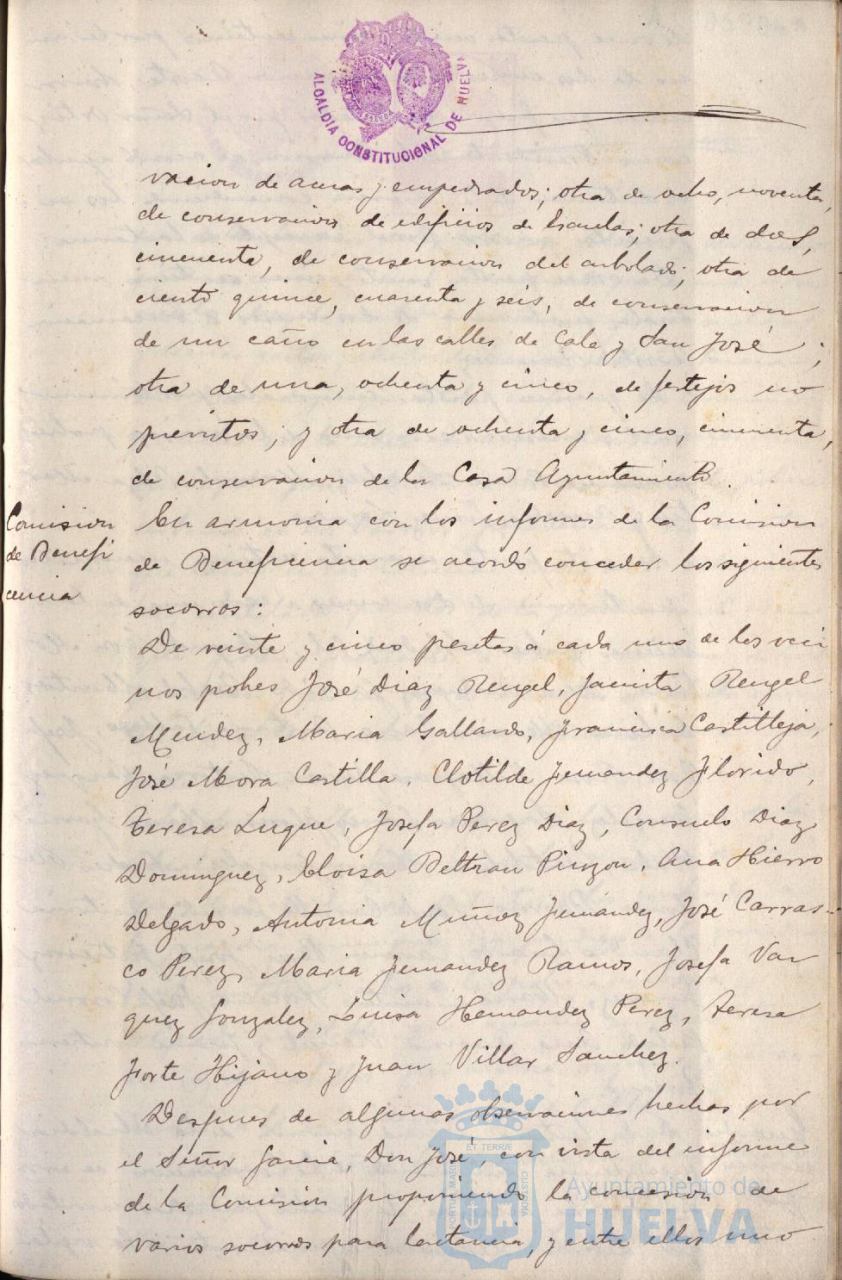 ALCALDIA CONSTITUCIONAL DE HUELVA
vacion de aceras y empedrados; otra de ocho, noventa,
de conservacion de edificios de Escuelas; otra de dos,
cincuenta, de conservacion del arbolado; otra de
ciento quince, cuarenta y seis, de conservacion
de un caño en las calles de Cala y San José;
otra de una, ochenta y cinco, de festejos no
previstos; y otra de ochenta y cinco, cincuenta,
de conservacion de la Casa Ayuntamiento.
Comision
de Benefi
cencia
En armonia con los informes de la Comision
de Beneficencia se acordó conceder los siguientes
socorros:
De veinte y cinco pesetas á cada uno de los veci
nos pobres José Diaz Rengel, Jacinta Rengel
Mendez, Maria Gallardo, Francisca Castilleja,
José Mora Castilla, Clotilde Fernandez Florido,
Teresa Luque, Josefa Perez Diaz, Consuelo Diaz
Dominguez, Eloisa Beltran Pinzon, Ana Hierro
Delgado, Antonia Muñoz Fernández, José Carras-
co Perez, Maria Fernandez Ramos, Josefa Vaz
quez Gonzalez, Luisa Hernandez Perez, Teresa
Forte Hijano y Juan Villar Sanchez.
Despues de algunas observaciones hechas por
el Señor Garcia, Don José, con vista del informe
de la Comision proponiendo la concesion de
varios socorros para lactancia, y entre ellos uno
Ayuntamiento de
HUELVA